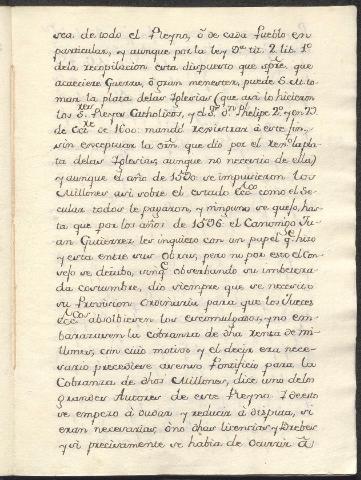 sea de todo el Reyno, ó de cada Pueblo en
particular, y aunque por la ley 9.ª tit. 2. lib. 1.º
dela recopilacion esta dispuesto que spre. que
acaeciere Guerra, ó gran menester, puede S. M. to
mar la plata delas Iglesias (que asi lo hicieron
los S.res Reyes Catholicos, y el S.r D.n Phelipe 2.º y en 23.
de de 1600. mandó rexistrar á este fin,
sin exceptuar la que dio por el la pla
ta delas Iglesias, aunque no necesito de ella)
y aunque el año de 1590 se impusieron los
Millones asi sobre el estado Ecc.co como el Se
cular todos le pagaron, y ninguno se quejo, has
ta que por los años de 1596. el Canonigo Ju
an Gutierrez les inquieto con un papel q.e hizo
y esta entre sus Obras, pero no por esto el Con
sejo se detubo, sinó q.e obserbando su imbetera
da costumbre, dio siempre que se necesito
su Provision Ordinaria para que los Jueces
Ecc.cos absolbiesen los excomulgados, y no em
barazasen la cobranza de dha renta de mi
llones, con cuio motivo y el decir era nece
sario precediese asenso Pontificio para la
Cobranza de dhos Millones, dice uno delos
grandes Autores de este Reyno
se empezó á dudar y reducir á disputa, si
eran necesarias, ó nó dhas licencias y Brebes
y si precisamente se habia de ocurrir á